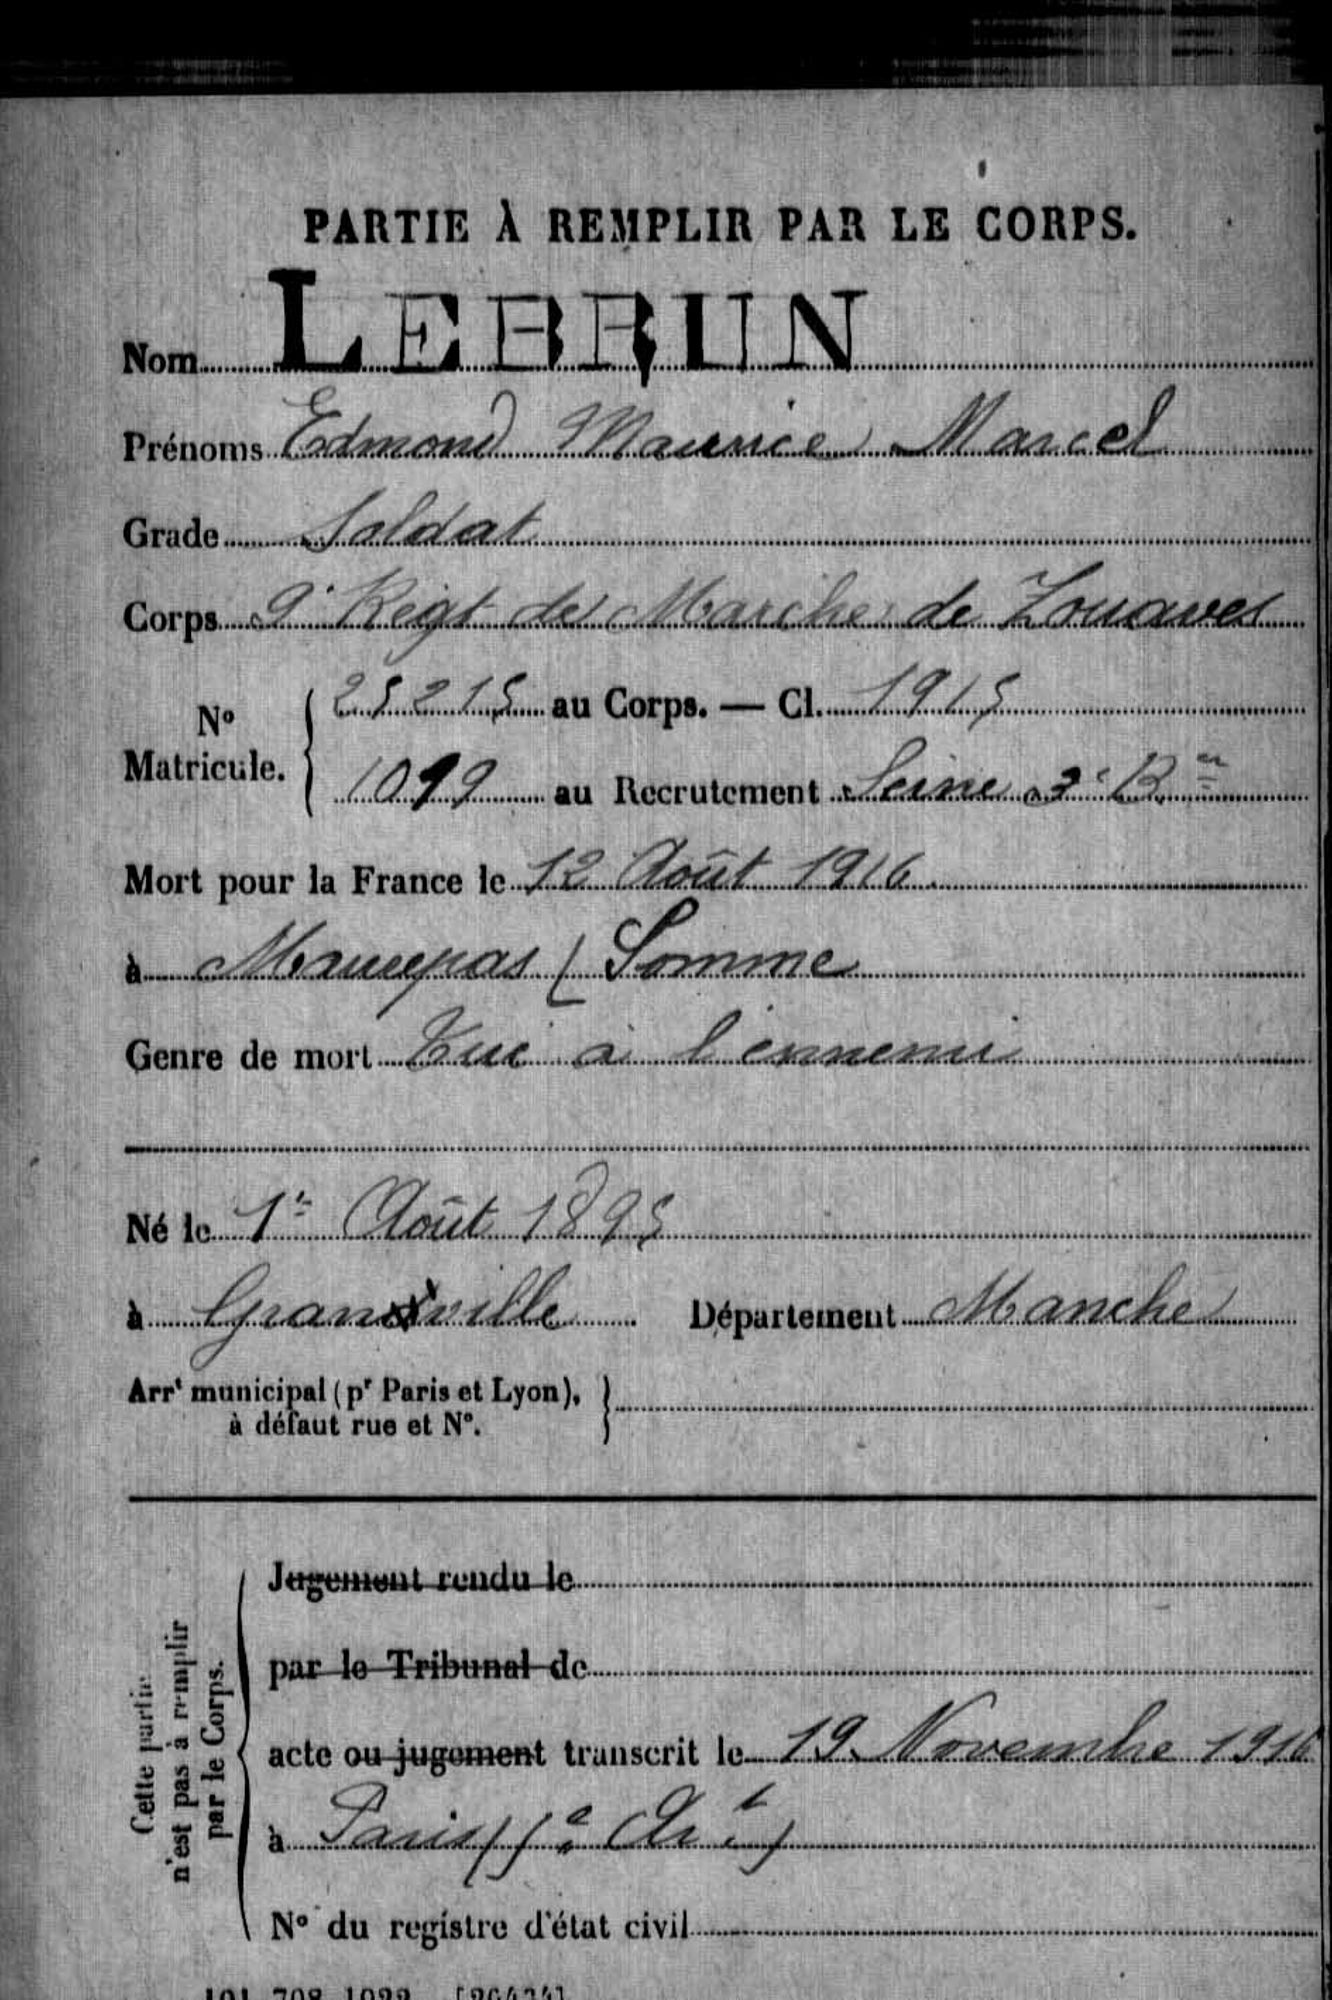 PARTIE À REMPLIR PAR LE CORPS.
Nom LEBRUN
Prénoms Edmond Maurice Marcel
Grade Soldat
Corps 9e Régt de Marche de Zouaves
N° Matricule. { 25215 au Corps. — Cl. 1915
1099 au Recrutement Seine 3e Bau
Mort pour la France le 12 Août 1916
à Maurepas ( Somme
Genre de mort Tué à l'ennemi
Né le 1er Août 1895
à Granville Département Manche
Arrt municipal (pr Paris et Lyon), }
à défaut rue et N°.
Cette partie
n'est pas à remplir
par le Corps.
Jugement rendu le
par le Tribunal de
acte ou jugement transcrit le 19 Novembre 1916
à Paris ( e Art)
N° du registre d'état civil
101 708 1922 [26434]